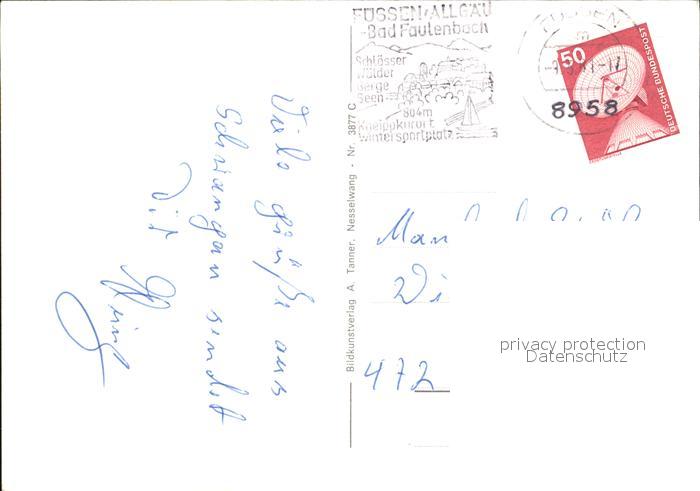 FÜSSEN/ALLGÄU
-Bad Faulenbach
Schlösser
Wälder
Berge
Seen
804m
Kneippkurort
Wintersportplatz
FÜSSEN
8958
50
DEUTSCHE BUNDESPOST
Viele Grüße aus
Schwangau sendet
Dir
Bildkunstverlag A. Tanner, Nesselwang - Nr. 3877 C
Man
Di
472
privacy protection
Datenschutz